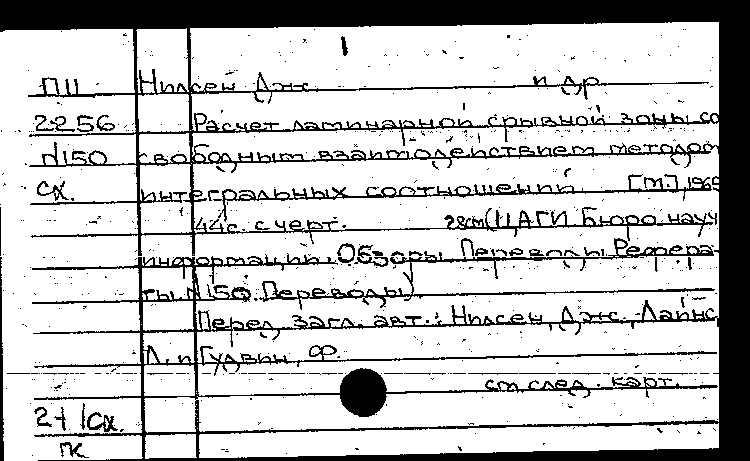 1
П11 Нилсен Дж. и др.
2256 Расчет ламинарной срывной зоны со
N150 свободным взаимодействием методом
Сх. интегральных соотношений. [М.], 1969
44с. с черт. 28см (ЦАГИ. Бюро науч
информации. Обзоры. Переводы. Рефера-
ты. N150. Переводы).
Перед загл. авт.: Нилсен, Дж., Лайнс,
Л. и Гудвин, Ф.
см. след. карт.
2+1Сх.
ПК